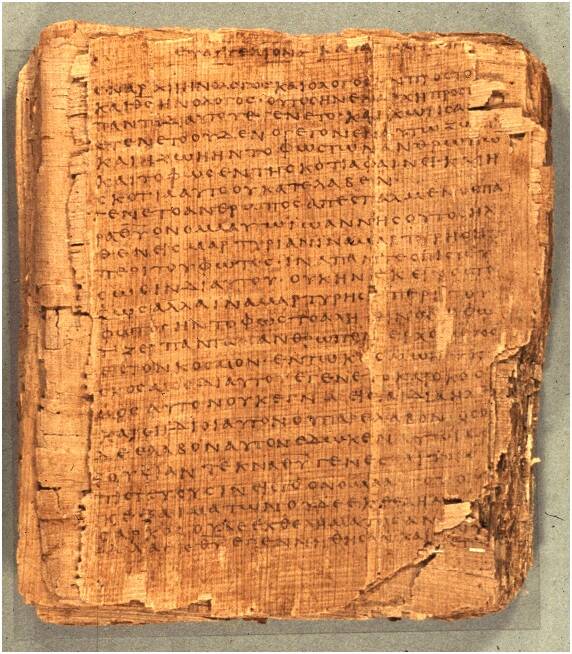 ΕΥΑΓΓΕΛΙΟΝ ΚΑΤΑ
ΕΝ ΑΡΧΗ ΗΝ Ο ΛΟΓΟΣ ΚΑΙ Ο ΛΟΓΟΣ ΗΝ ΠΡΟΣ ΤΟ
ΚΑΙ ΘΣ ΗΝ Ο ΛΟΓΟΣ· ΟΥΤΟΣ ΗΝ ΕΝ ΑΡΧΗ ΠΡΟΣ
ΠΑΝΤΑ ΔΙ ΑΥΤΟΥ ΕΓΕΝΕΤΟ· ΚΑΙ ΧΩΡΙΣ
ΕΓΕΝΕΤΟ ΟΥΔΕΝ Ο ΓΕΓΟΝΕΝ ΕΝ ΑΥΤΩ
ΚΑΙ Η ΖΩΗ ΗΝ ΤΟ ΦΩΣ ΤΩΝ ΑΝΘΡΩΠΩ
ΚΑΙ ΤΟ ΦΩΣ ΕΝ ΤΗ ΣΚΟΤΙΑ ΦΑΙΝΕΙ· ΚΑΙ Η
ΣΚΟΤΙΑ ΑΥΤΟ ΟΥ ΚΑΤΕΛΑΒΕΝ
ΕΓΕΝΕΤΟ ΑΝΘΡΩΠΟΣ ΑΠΕΣΤΑΛΜΕΝΟΣ ΠΑ
ΡΑ ΘΥ ΟΝΟΜΑ ΑΥΤΩ ΙΩΑΝΝΗΣ ΟΥΤΟΣ ΗΛ
ΘΕΝ ΕΙΣ ΜΑΡΤΥΡΙΑΝ ΙΝΑ ΜΑΡΤΥΡΗΣΗ
ΠΕΡΙ ΤΟΥ ΦΩΤΟΣ· ΙΝΑ ΠΑΝΤΕΣ ΠΙΣΤΕΥ
ΣΩΣΙΝ ΔΙ ΑΥΤΟΥ· ΟΥΚ ΗΝ ΕΚΕΙΝΟΣ ΤΟ Φ
ΩΣ ΑΛΛΑ ΙΝΑ ΜΑΡΤΥΡΗΣΗ ΠΕΡΙ ΤΟΥ
ΦΩΤΟΣ ΗΝ ΤΟ ΦΩΣ ΤΟ ΑΛΗΘΙΝΟΝ Ο ΦΩ
ΤΙΖΕΙ ΠΑΝΤΑ ΑΝΘΡΩΠΟΝ
ΕΙΣ ΤΟΝ ΚΟΣΜΟΝ· ΕΝ ΤΩ ΚΟΣΜΩ ΗΝ
ΚΟΣΜΟΣ ΔΙ ΑΥΤΟΥ ΕΓΕΝΕΤΟ ΚΑΙ Ο ΚΟΣ
ΜΟΣ ΑΥΤΟΝ ΟΥΚ ΕΓΝΩ ΕΙΣ ΤΑ ΙΔΙΑ ΗΛ
ΚΑΙ ΟΙ ΙΔΙΟΙ ΑΥΤΟΝ ΟΥ ΠΑΡΕΛΑΒΟΝ ΟΣΟ
ΔΕ ΕΛΑΒΟΝ ΑΥΤΟΝ ΕΔΩΚΕΝ ΑΥΤΟΙΣ Ε
ΞΟΥΣΙΑΝ ΤΕΚΝΑ ΘΥ ΓΕΝΕΣΘΑΙ ΤΟΙΣ
ΠΙΣΤΕΥΟΥΣΙΝ ΕΙΣ ΤΟ ΟΝΟΜΑ
Κ ΕΞ ΑΙΜΑΤΩΝ ΟΥΔΕ ΕΚ ΘΕΛΗΜΑ
ΣΑΡΚΟΣ ΟΥΔΕ ΕΚ ΘΕΛΗΜΑΤΟΣ ΑΝ
ΑΛΛΑ ΕΚ ΘΥ ΕΓΕΝΝΗΘΗΣΑΝ ΚΑΙ